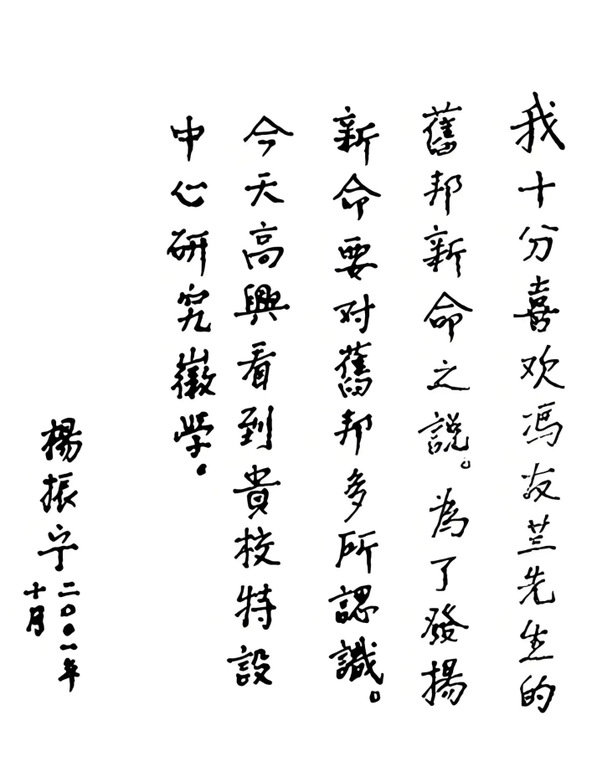 我十分喜欢馮友兰先生的
舊邦新命之説。為了發揚
新命要对舊邦多所認識。
今天高興看到貴校特設
中心研究徽学。
楊振宁
二〇〇一年
十月